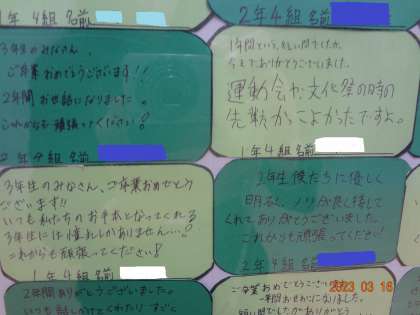 1年 4組 名前
3年生のみなさん、
ご卒業おめでとうございます!!
2年間お世話になりました。
これからも頑張ってください!
2年 組 名前
3年生のみなさん、ご卒業おめでとう
ございます!!
いつも私たちのお手本となってくれる
3年生には憧れしかありません…!
これからも頑張ってください!
1年4組 名前
2年間ありがとうございました。
2年4組 名前
1年間という短い間でしたが、
今までありがとうございました。
運動会や文化祭の時の
先輩かっこよかったですよ。
1年4組 名前
3年生 僕たちに優しく
明るく、ノリが良く接して
くれてありがとうございました。
これからも頑張ってください!
2年4組 名前
ご卒業おめでとうござい
一年間お世話になりました。
2023 03 16